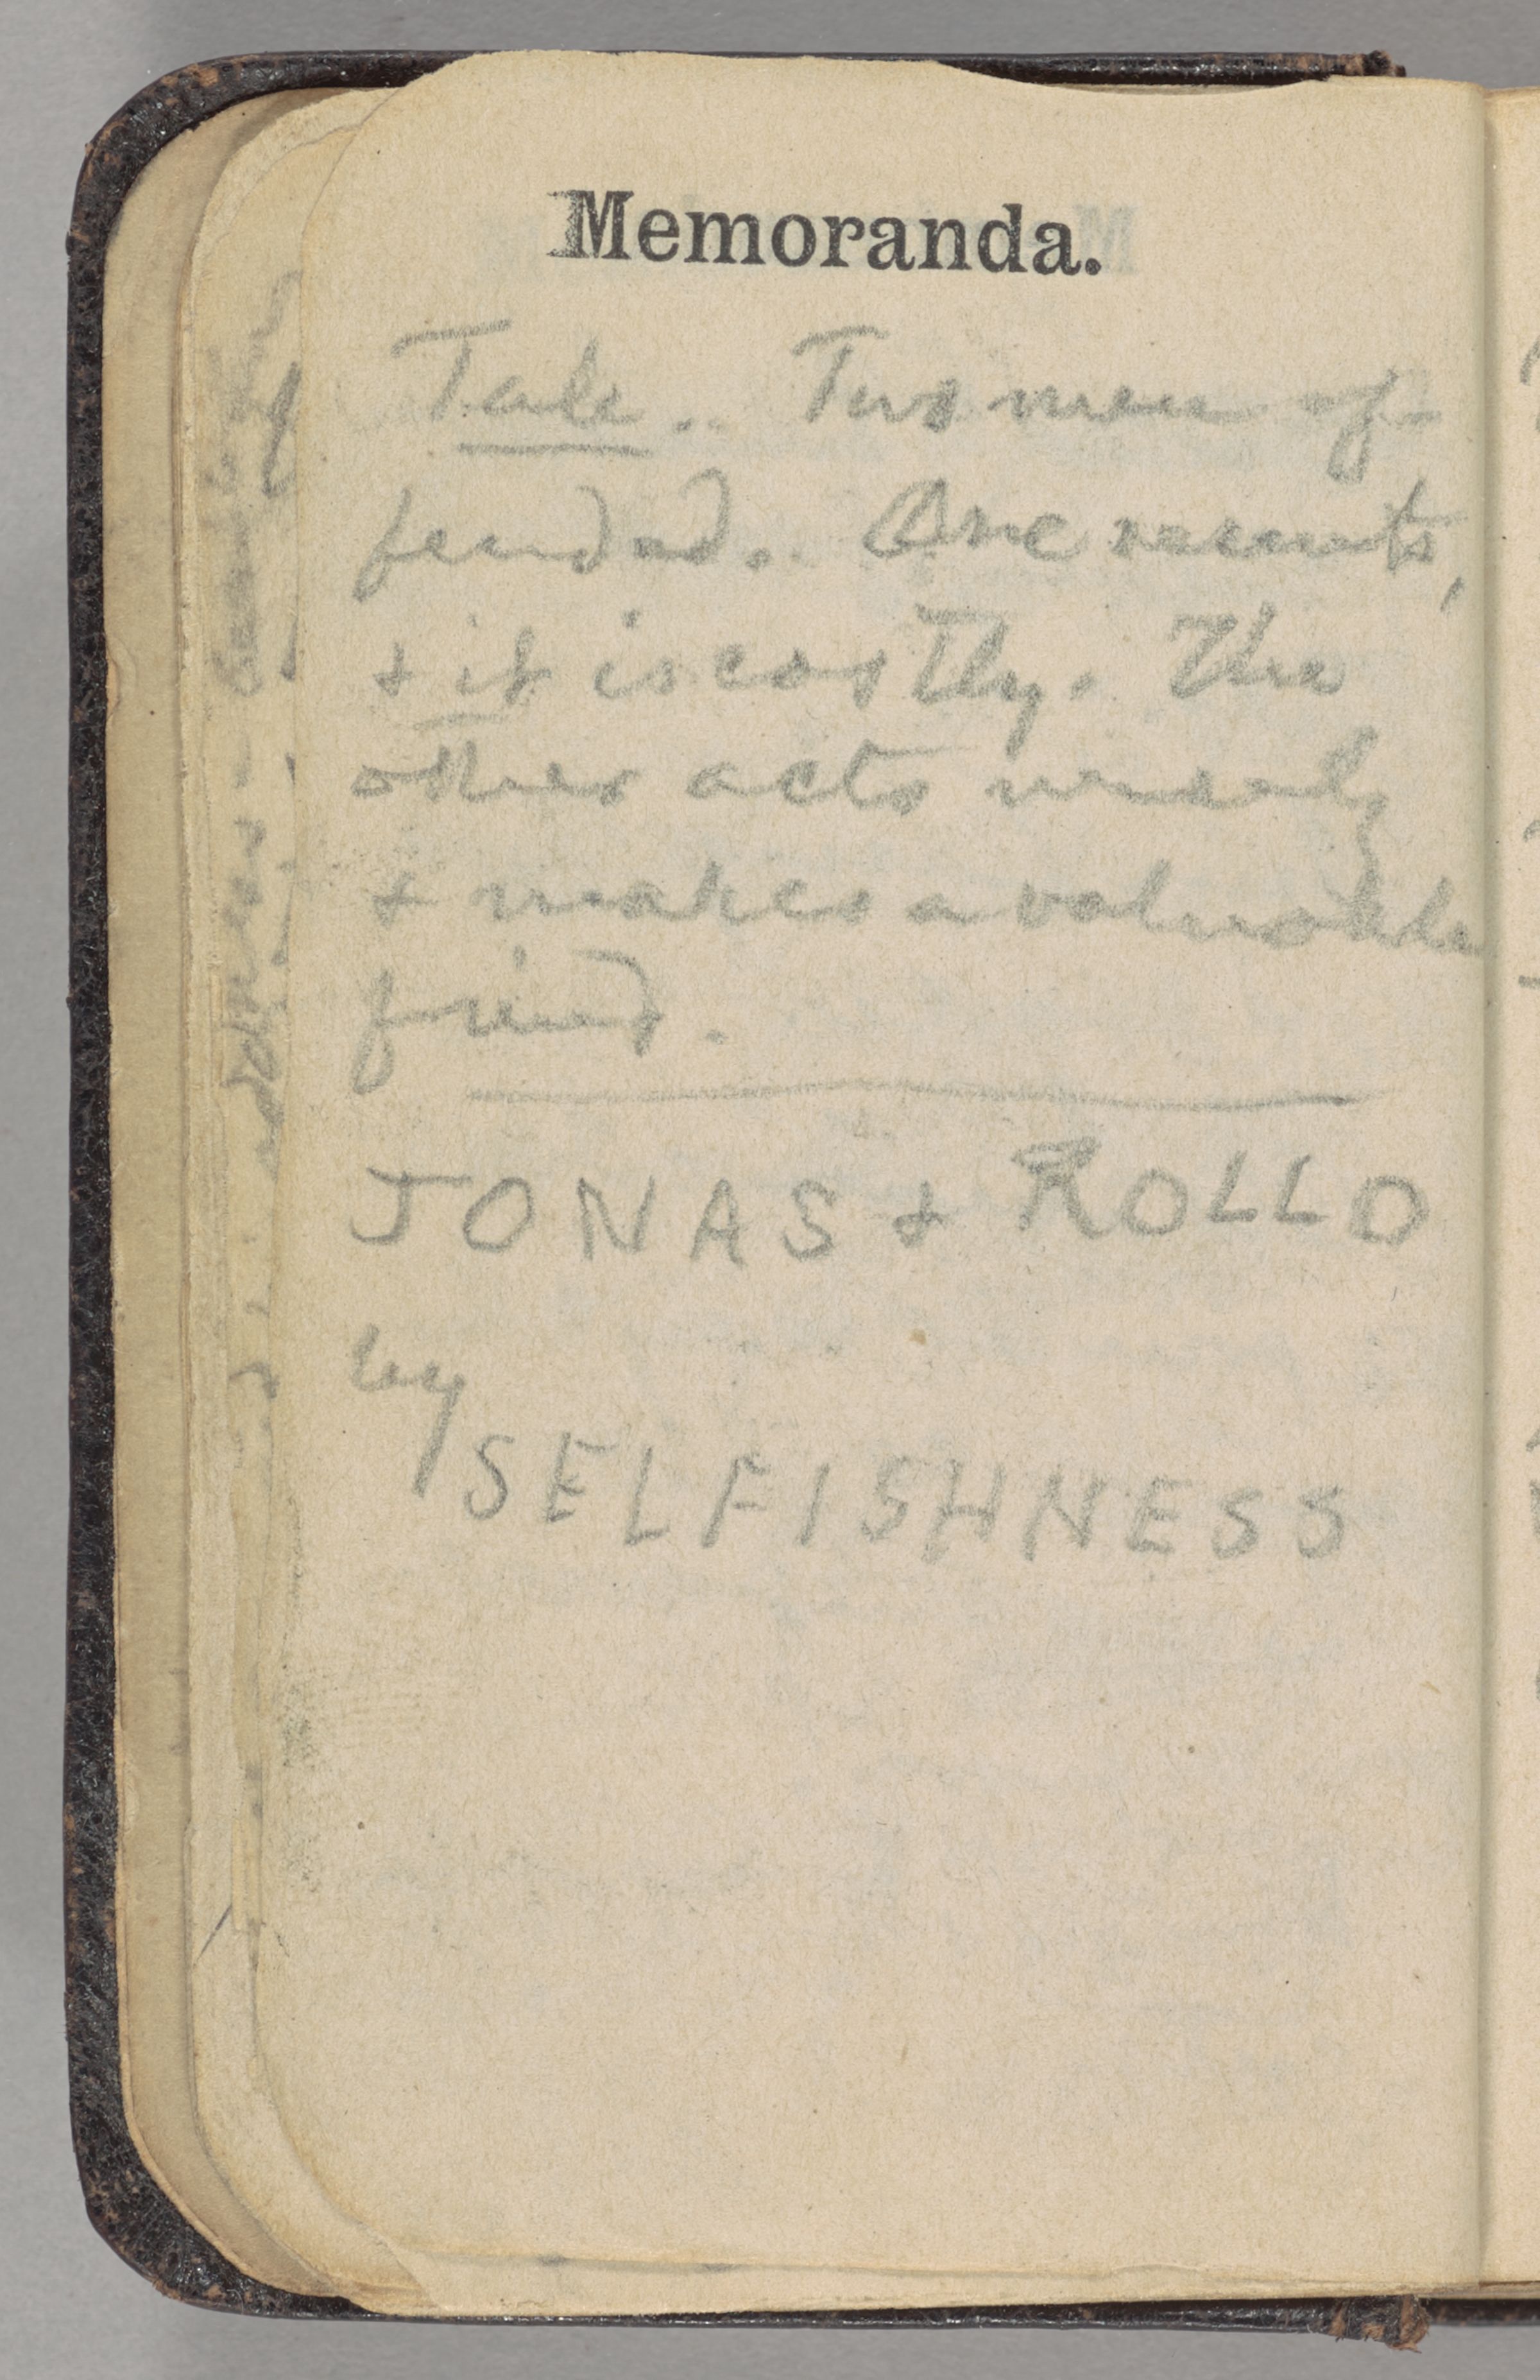 Memoranda.
Tale. Two men of
fended. One resents,
& it is costly. The
other acts wisely
& makes a valuable
friend.
JONAS & ROLLO
by
SELFISHNESS